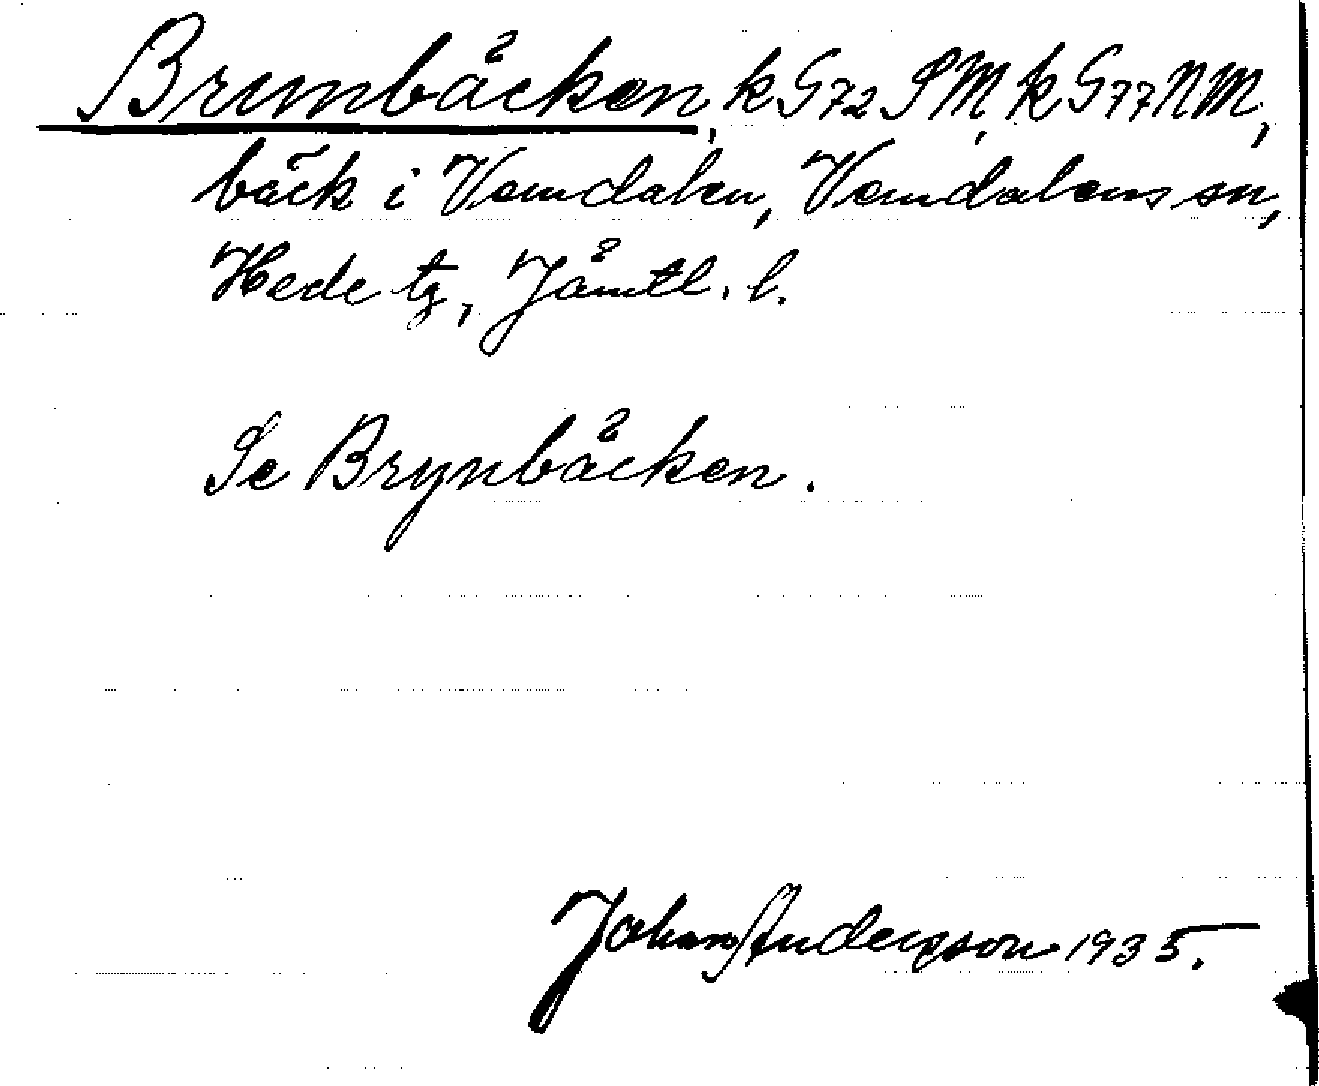 Brunbäcken, k G72 SM, k G77 NM,
bäck i Vemdalen, Vemdalens sn,
Hede tg, Jämtl. l.
Se Brynbäcken.
Johan Anderson 1935.